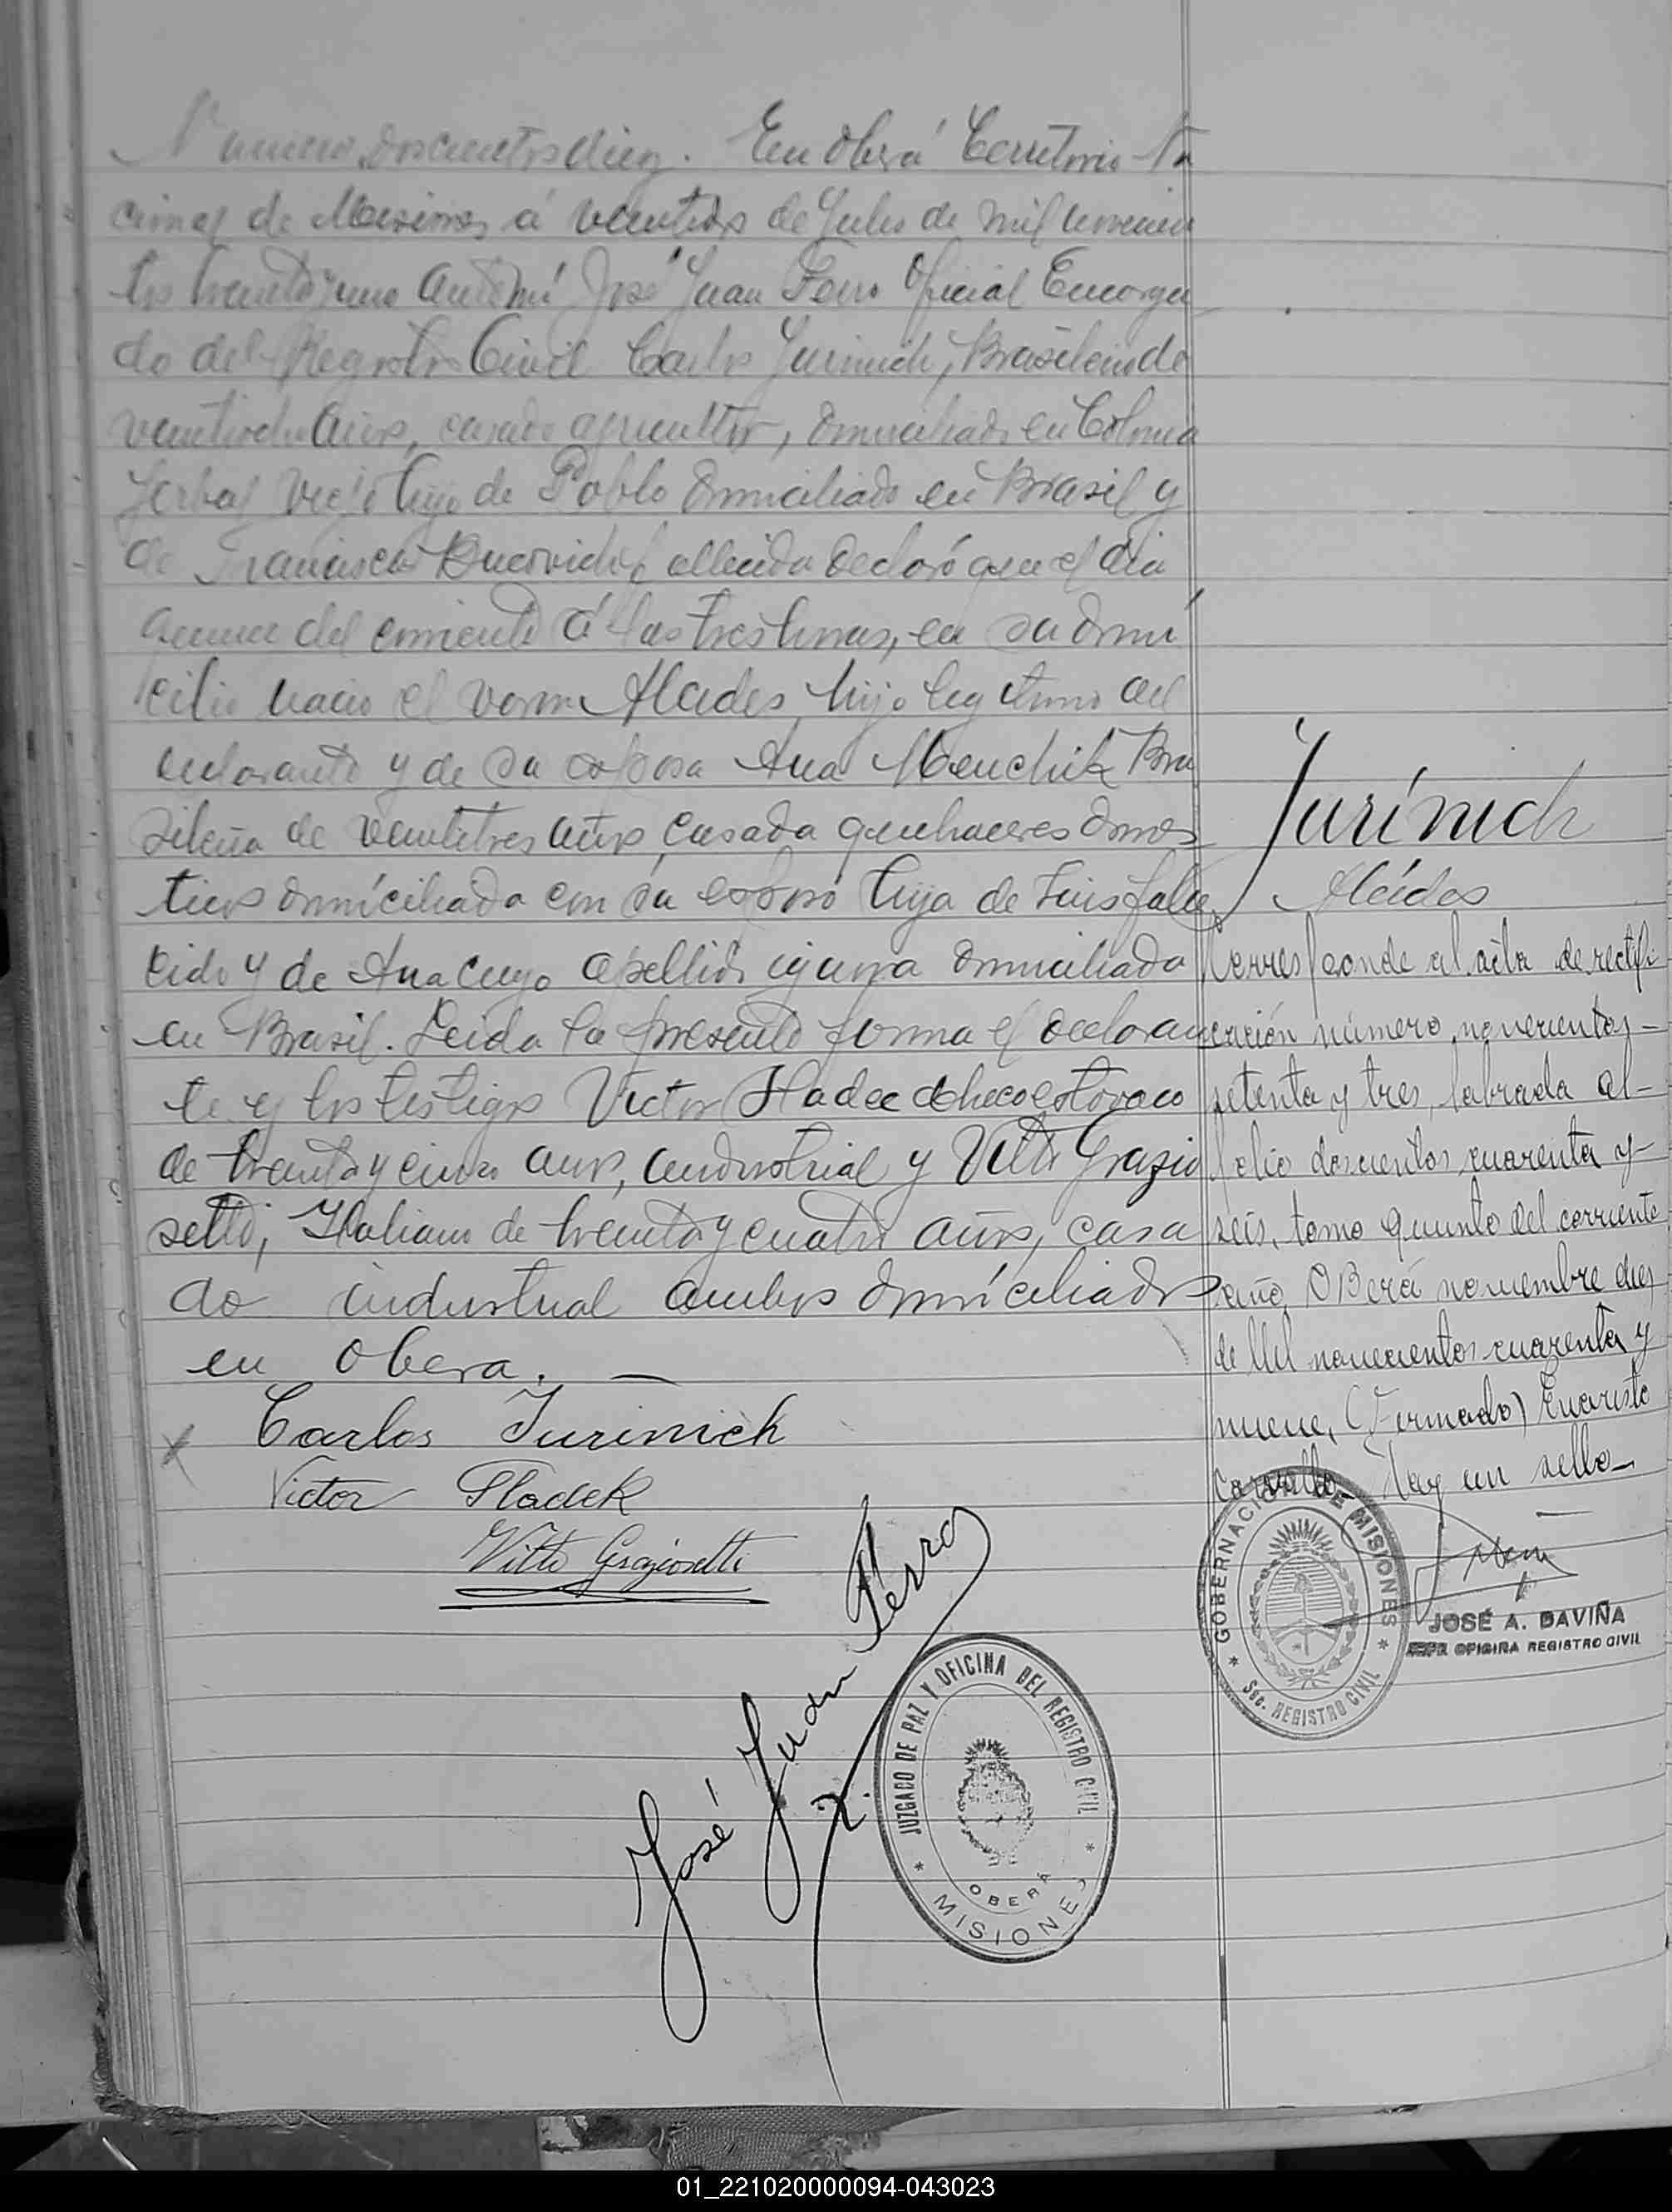 Numero doscientos diez. En Oberá Territorio Na
cional de Misiones á veintidos de Julio de mil novecien
tos treinta y uno Ante mí José Juan Ferro Oficial Encarga
do del Registro Civil Carlos Jurinich, Brasileño de
veintiocho años, casado agricultor, domiciliado en Colonia
Yerbal Viejo hijo de Pablo domiciliado en Brasil y
de Francisca fallecida declaró que el dia
del corriente á las tres horas, en su domi
cilio nacio el varon Alcides, hijo legitimo del
declarante y de su esposa Ana Menchik Bra
sileña de veintitres años, casada quehaceres domes
ticos domiciliada con su esposo hija de Luis falle
cido y de Ana cuyo apellido ignora domiciliada
en Brasil. Leida la presente firma el declaran
te y los testigos Victor Hladec checoeslovaco
de treinta y cinco años, industrial y Vitto Grazio
setti, Italiano de treinta y cuatro años, casa
do industrial ambos domiciliados
en Obera. —
Carlos Jurinich
Victor Hladek
Vitto Graziosetti
José Juan Ferro
JUZGADO DE PAZ Y OFICINA DEL REGISTRO CIVIL
OBERÁ
MISIONES
Jurínich
Alcídes
Corresponde al acta de rectifi
cación número novecientos
setenta y tres, labrada al
folio doscientos cuarenta y
seis, tomo quinto del corriente
año, OBerá noviembre diez
de Mil novecientos cuarenta y
nueve, (Firmado) Evaristo
Carvallo. Hay un sello—
GOBERNACIÓN DE MISIONES
Sec. REGISTRO CIVIL
JOSÉ A. DAVIÑA
OFICINA REGISTRO CIVIL
01_221020000094-043023